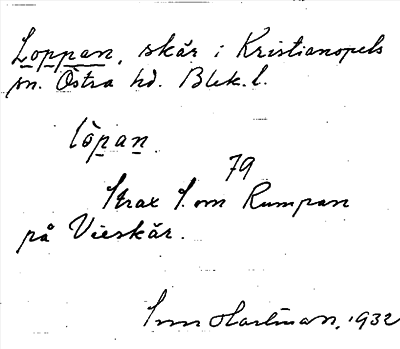 Loppan, skär i Kristianopels
sn. Östra hd. Blek. l.
löpan.
79
Strax S. om Rumpan
på Vieskär.
Hartman, 1932